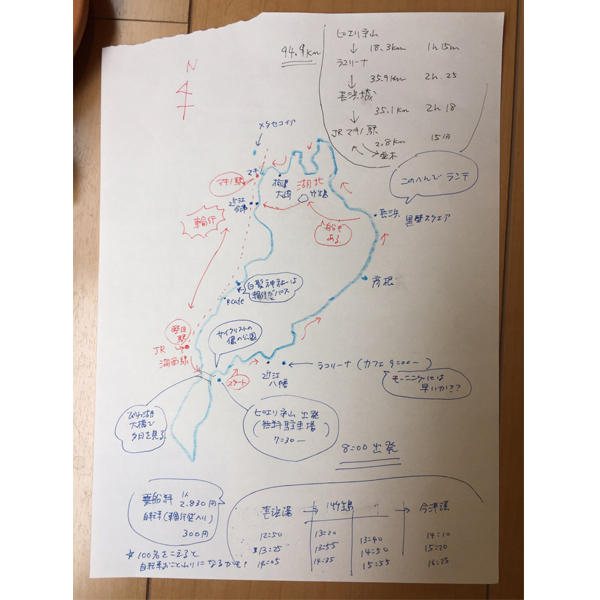 94.9km
ピエリ守山
↓ 18.3km 1h 15m
ラコリーナ
↓ 35.9km 2h.25
長浜城
↓ 35.1km 2h 18
JRマキノ駅
2.8km 15分
並木
N
メタセコイア
このへんで ランチ
マキノ
マキノ駅
海津
大崎
湖北
竹生島
近江
今津
輪行
船も
ある
長浜
黒壁スクエア
彦根
白髭神社は
輪行でパス
R cafe
サイクリストの
聖の公園
堅田
駅
JR
湖西線
スタート
近江
八幡
ラコリーナ (カフェ 9:00〜
モーニングには
早いか??
びわ湖
大橋で
夕日を見る
ピエリ守山 出発
(無料駐車場)
7:30〜
8:00 出発
乗船料 1人
2,830円
自転車(輪行袋入り)
300円
☆ 100名をこえると
自転車おことわりになるかも?
長浜港 → 竹生島 → 今津港
12:50 13:20 13:40 14:10
13:25 13:55 14:50 15:20
14:05 14:35 15:55 16:25